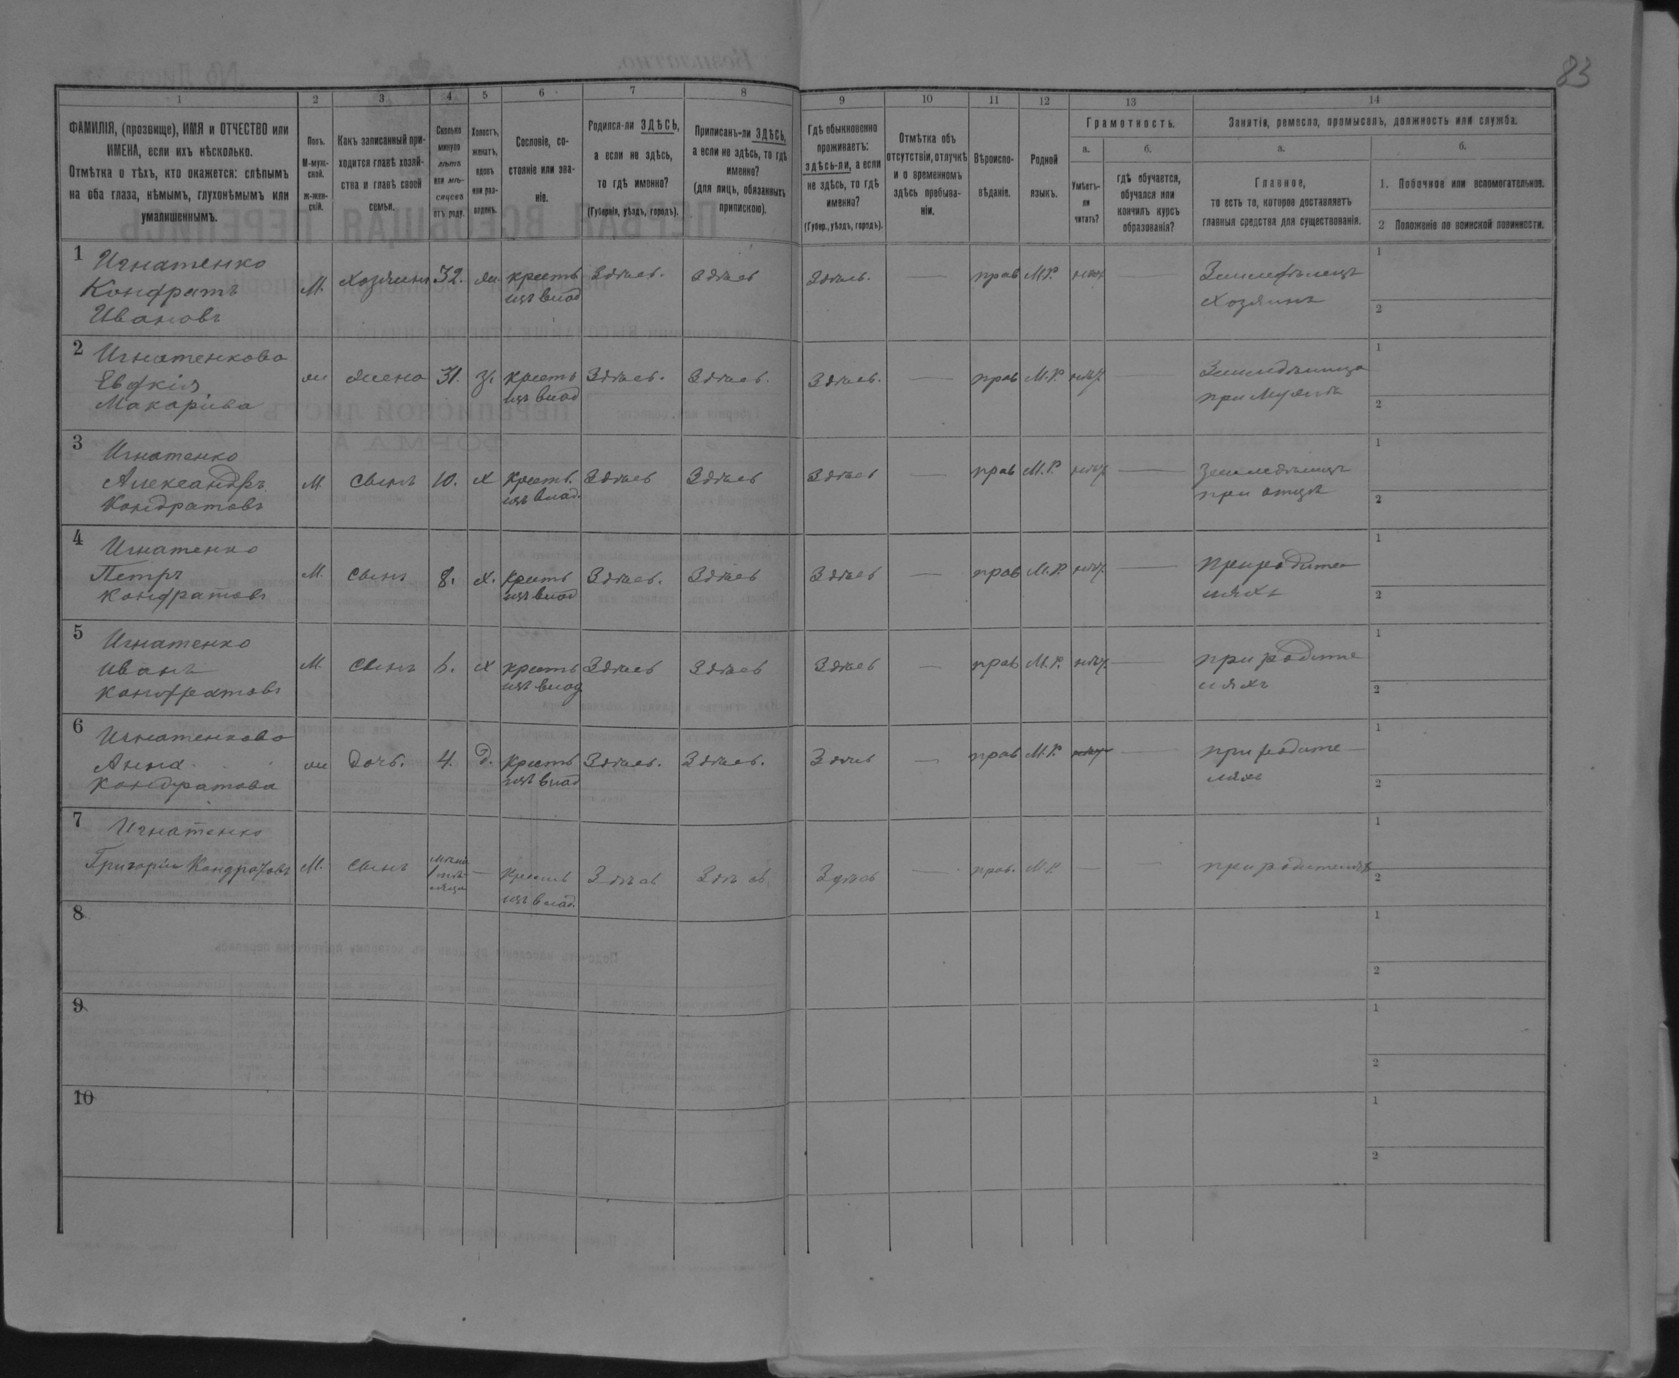 83
1 2 3 4 5 6 7 8 9 10 11 12 13 14
ФАМИЛІЯ, (прозвище), ИМЯ и ОТЧЕСТВО или
ИМЕНА, если ихъ нѣсколько.
Отмѣтка о тѣхъ, кто окажется: слѣпымъ
на оба глаза, нѣмымъ, глухонѣмымъ или
умалишеннымъ.
Полъ.
М-муж-
ской.
ж-жен-
скій.
Какъ записанный при-
ходится главѣ хозяй-
ства и главѣ своей
семьи.
Сколько
минуло
лѣтъ
или мѣ-
сяцевъ
отъ роду.
Холостъ,
женатъ,
вдовъ
или раз-
веденъ.
Сословіе, со-
стояніе или зва-
ніе.
Родился-ли ЗДѢСЬ,
а если не здѣсь,
то гдѣ именно?
(Губернія, уѣздъ, городъ).
Приписанъ-ли ЗДѢСЬ,
а если не здѣсь, то гдѣ
именно?
(для лицъ, обязанныхъ
припискою).
Гдѣ обыкновенно
проживаетъ:
здѣсь-ли, а если
не здѣсь, то гдѣ
именно?
(Губер., уѣздъ, городъ).
Отмѣтка объ
отсутствіи, отлучкѣ
и о временномъ
здѣсь пребыва-
ніи.
Вѣроиспо-
вѣданіе.
Родной
языкъ.
Грамотность.
а.
Умѣетъ-
ли
читать?
б.
гдѣ обучается,
обучался или
кончилъ курсъ
образованія?
Занятіе, ремесло, промыселъ, должность или служба.
а.
Главное,
то есть то, которое доставляетъ
главныя средства для существованія.
б.
1. Побочное или вспомогательное.
2 Положеніе по воинской повинности.
1 Игнатенко
Кондратъ
Ивановъ
М. хозяинъ 32. ж. крестъ Здѣсь. Здѣсь Здѣсь. — прав М.Р. нѣтъ — Земледѣлецъ 1
изъ влад хозяинъ 2
2 Игнатенкова
Евдкія
Макаріева
ж жена 31. з. крестъ Здѣсь. Здѣсь. Здѣсь. — прав М.Р. нѣтъ — 1
изъ влад при мужѣ 2
3 Игнатенко
Александръ
Кондратовъ
М сынъ 10. х крестъ. Здѣсь Здѣсь Здѣсь — прав М.Р. нѣтъ — Земледѣлецъ 1
изъ влад. при отцѣ 2
4 Игнатенко
Петръ
Кондратовъ
М. сынъ 8. х. крестъ Здѣсь. Здѣсь Здѣсь — прав М.Р. нѣтъ — при родите 1
изъ влад ляхъ 2
5 Игнатенко
Иванъ
Кондратовъ
М. сынъ 6. х крестъ Здѣсь Здѣсь Здѣсь — прав М.Р. нѣтъ — при родите 1
изъ влад ляхъ 2
6 Игнатенкова
Анна
Кондратова
ж дочь. 4. Д. крестъ Здѣсь. Здѣсь. Здѣсь — прав М.Р. нѣтъ — при родите 1
изъ влад ляхъ 2
7 Игнатенко
Григорій Кондратовъ М. сынъ — крестъ Здѣсь Здѣсь Здѣсь — прав. М.Р. — — при родителяхъ 1
изъ влад. 2
8 1
2
9 1
2
10 1
2